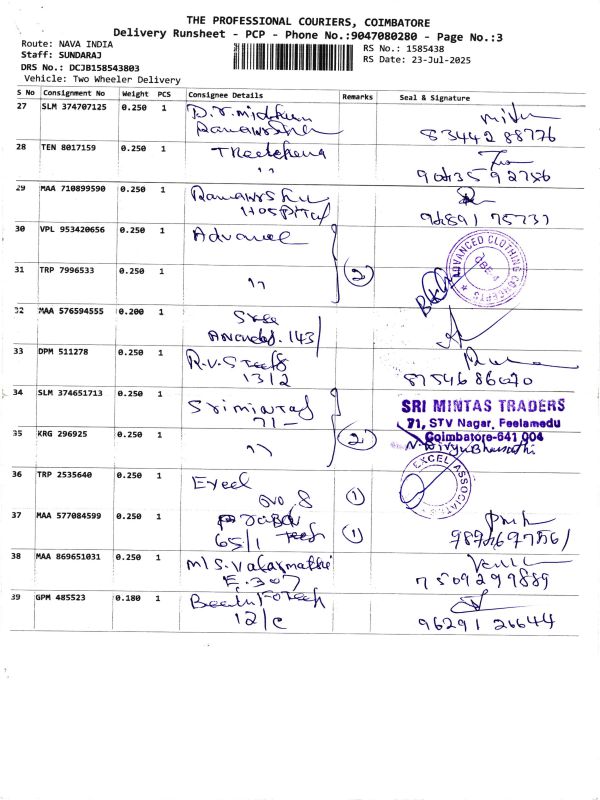 THE PROFESSIONAL COURIERS, COIMBATORE
Delivery Runsheet - PCP - Phone No.:9047080280 - Page No.:3
Route: NAVA INDIA
RS No.: 1585438
Staff: SUNDARAJ
RS Date: 23-Jul-2025
DRS No.: DCJB158543803
Vehicle: Two Wheeler Delivery
S No Consignment No Weight PCS Consignee Details Remarks Seal & Signature
27 SLM 374707125 0.250 1
83442 88776
28 TEN 8017159 0.250 1
,,
29 MAA 710899590 0.250 1
Hospital
96891 75737
30 VPL 953420656 0.250 1 Advance
ADVANCED CLOTHING CONCEPTS
CBE-4
31 TRP 7996533 0.250 1 ,, 2
32 MAA 576594555 0.200 1 Sree
143
33 DPM 511278 0.250 1 R.V.S Teefs
13/2
87546 86070
34 SLM 374651713 0.250 1 Srimintas
71-
SRI MINTAS TRADERS
71, STV Nagar, Peelamedu
Coimbatore-641 004
35 KRG 296925 0.250 1 ,, 2
N. Divya Bharathi
36 TRP 2535640 0.250 1 Excel
No. 8 1
EXCEL ASSOCIATES
37 MAA 577084599 0.250 1
65/1 Tech 1
38 MAA 869651031 0.250 1 M/S. Valarmathi
E. 307
75092 99889
39 GPM 485523 0.180 1
12/C
96291 26644